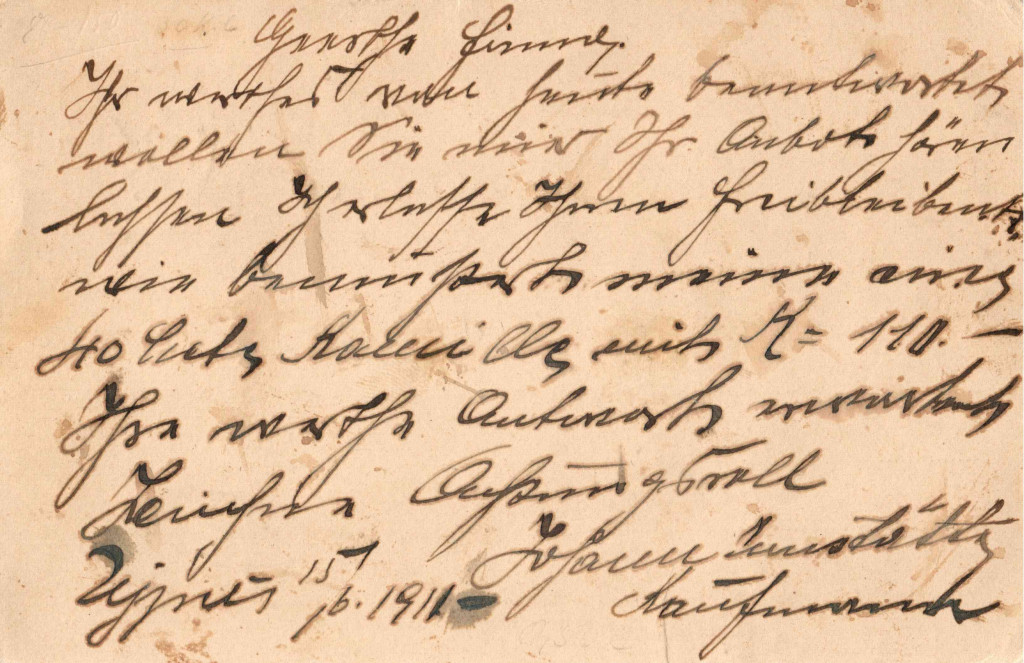 Geerthe Firma.
Ihr werthes von heute beantwortet
wollen Sie mir Ihr Anbot hören
lassen Ich erlasse Ihnen freibleibent
wie bemustert meine
40 Kamille mit K= 110.–
Ihre werthe Antwort erwartent
Zeichne Achtungsvoll
Johann
15/6. 1911 Kaufmann